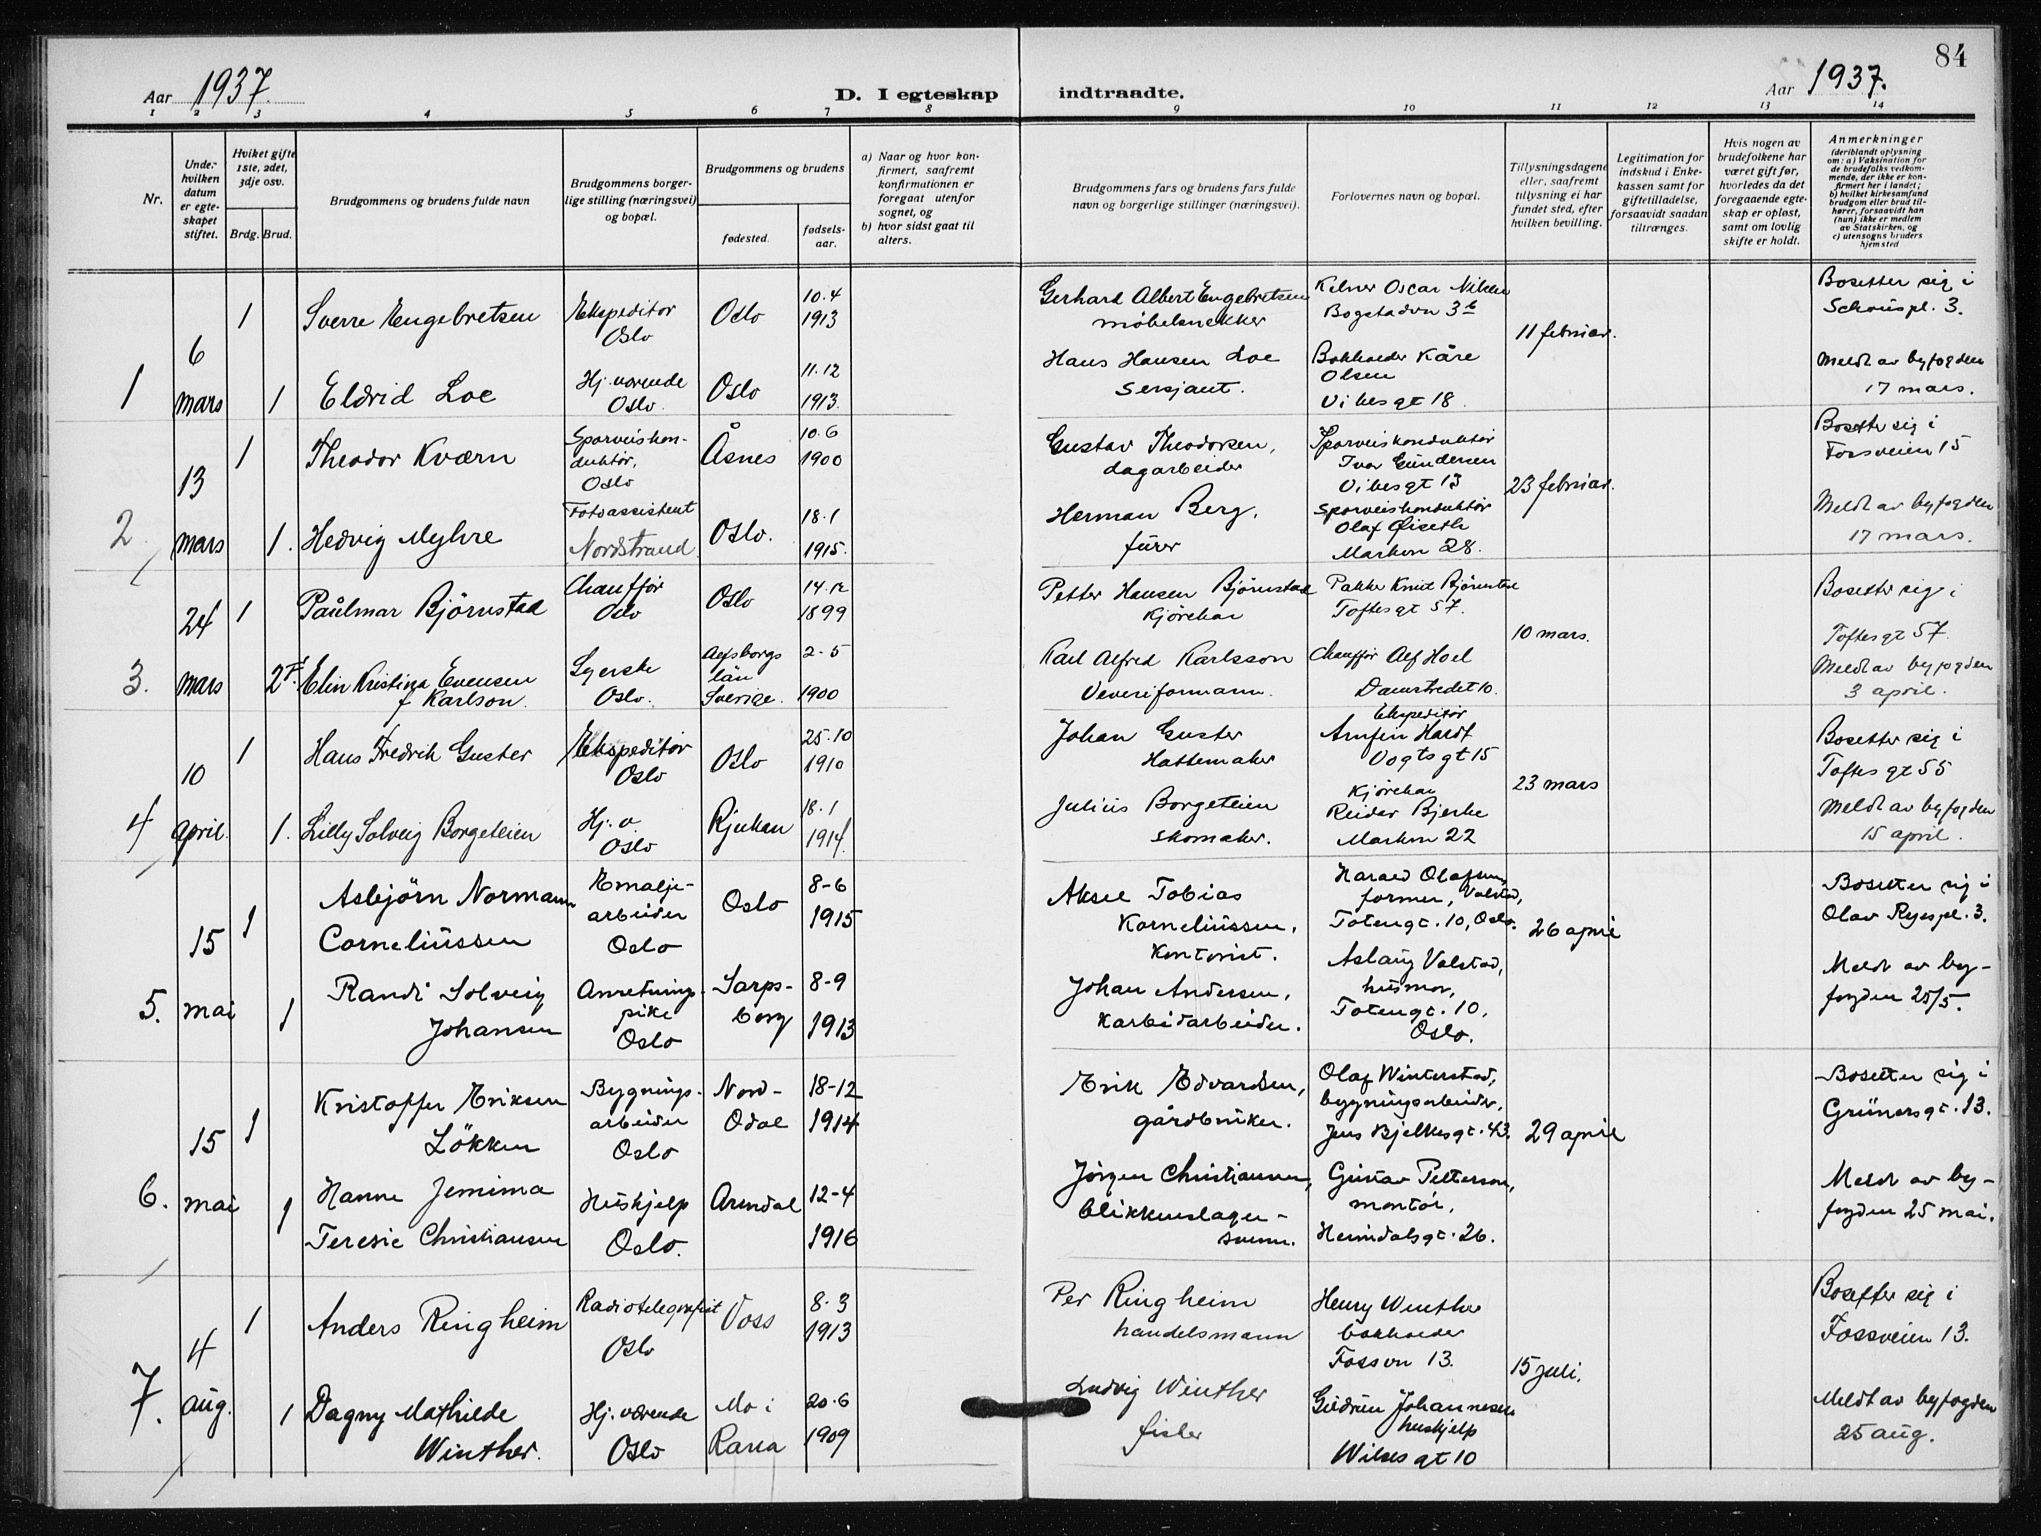 84
Aar 1937.
D. I egteskap indtraadte.
Aar 1937.
1 2 3 4 5 6 7 8 9 10 11 12 13 14
Nr.
Under hvilken datum er egteskapet stiftet.
Hviket gifte 1ste, 2det, 3dje osv.
Brdg. Brud.
Brudgommens og brudens fulde navn
Brudgommens borgerlige stilling (næringsvei) og bopæl.
Brudgommens og brudens
fødested. fødselsaar.
a) Naar og hvor konfirmert, saafremt konfirmationen er foregaat utenfor sognet, og
b) hvor sidst gaat til alters.
Brudgommens fars og brudens fars fulde navn og borgerlige stillinger (næringsvei).
Forlovernes navn og bopæl.
Tillysningsdagene eller, saafremt tillysning ei har fundet sted, efter hvilken bevilling.
Legitimation for indskud i Enkekassen samt for giftetilladelse, forsaavidt saadan tiltrænges.
Hvis nogen av brudefolkene har været gift før, hvorledes da det foregaaende egteskap er opløst, samt om lovlig skifte er holdt.
Anmerkninger
(deriblandt oplysning om: a) Vaksination for de brudefolks vedkommende, der ikke er konfirmert her i landet; b) hvilket kirkesamfund brudgom eller brud tilhører, forsaavidt han (hun) ikke er medlem av Statskirken, og c) utensogns bruders hjemsted
1
6 mars
1 Sverre Engebretsen
Ekspeditør Oslo
Oslo
10.4 1913
Gerhard Albert Engebretsen møbelsnekker
Kelner Oscar Nilsen Bogstadvn 3b
11 februar.
Bosetter sig i Schouspl. 3.
1 Eldrid Loe
Hj. værende Oslo.
Oslo
11.12 1913.
Hans Hansen Loe Sersjant.
Bokholder Kåre Olsen Vibesgt 18.
Meldt av byfogden 17 mars.
2
13 mars
1 Theodor Kværn
Sporveiskonduktør, Oslo
Åsnes
10.6 1900
Gustav Theodorsen, dagarbeider
Sporveiskonduktør Ivar Gundersen Vibesgt 13
23 februar.
Bosetter sig i Fossveien 15
1. Hedvig Myhre
Fotoassistent Nordstrand
Oslo.
18.1 1915.
Herman Berg, fürer
Sporveiskonduktør Olaf Øiseth Markvn 28.
Meldt av byfogden 17 mars.
3.
24 mars
1 Paulmar Bjørnstad
Chauffør Oslo
Oslo
14.12 1899
Petter Hansen Bjørnstad Kjørekar
Pakker Knut Bjørnstad Toftesgt 57.
10 mars.
Bosetter sig i Toftesgt 57.
2 Elin Kristina Evensen f Karlson.
Syerske Oslo.
Aelsborgs län Sverige.
2-5 1900
Karl Alfred Karlsson Veveriformann.
Chauffør Alf Hoel Damstredet 10.
Meldt av byfogden 3 april.
4
10 april.
1 Hans Fredrik Guster
Ekspeditør Oslo
Oslo
25.10 1910
Johan Guster Hattemaker
Ekspeditør Arnfin Hardt Vogtsgt 15
23 mars
Bosetter sig i Toftesgt 55
1. Lilly Solveig Borgeteien
Hj. v. Oslo
Rjukan
18.1 1914.
Julius Borgeteien skomaker.
Kjørekar Reidar Bjerke Markvn 22
Meldt av byfogden 15 april.
5.
15 mai
1 Asbjörn Normann Corneliussen
Emaljearbeider Oslo
Oslo
8-6 1915
Aksel Tobias Korneliussen, Kontorist.
Harald Olafsen, former, Valstad, Totengt. 10, Oslo.
26 april
Bosetter sig i Olav Ryespl. 3.
1 Randi Solveig Johansen
Anretningspike Oslo
Sarpsborg
8-9 1913
Johan Andersen, Karbidarbeider.
Aslaug Valstad, husmor, Totengt. 10, Oslo.
Meldt av byfogden 25/5.
6.
15 mai
1 Kristoffer Eriksen Lökken
Bygningsarbeider Oslo
Nord-Odal
18-12 1914
Erik Edvardsen, gårdbruker.
Olaf Winterstad, bygningsarbeider, Jens Bjelkesgt. 43.
29 april
Bosetter sig i Grünersgt. 13.
1 Hanne Jemima Teresie Christiansen
Hushjelp Oslo.
Arendal
12-4 1916
Jørgen Christiansen, blikkenslagersvenn.
Gustav Petterson, montør, Heimdalsgt. 26.
Meldt av byfogden 25 mai.
7.
4 aug.
1 Anders Ringheim
Radiotelegrafist Oslo
Voss
8.3 1913
Per Ringheim handelsmann
Henry Winther bokholder Fossvn 13.
15 juli.
Bosetter sig i Fossveien 13.
1 Dagny Mathilde Winther.
Hj. værende Oslo
Mo i Rana
20.6 1909
Ludvig Winther fisker
Gudrun Johannesen huskjelp Wilsesgt 10
Meldt av byfogden 25 aug.